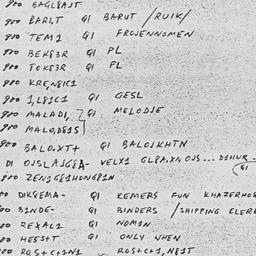 900 BAGL8AJT
900 BARI,T GI BARUT /RUIK/
900 TEM1 GI FROJENNOMEN
900 BEKE3R GI PL
900 TOKE3R GI PL
900 KRE,N81C1
900 1,L81C1 GI GESL
900 MALADI, GI MELODJE
900 MALO,D81S
900 BALO.XT+ GI BALOJKHTN
DI OJSLAJGEA- VELX1 GLEA.XN OJS...
900 ZEN1GE1HONG81N
DIKGEMA- GI KEMERS FUN KHAZERHO
B1NDE- GI BINDERS /SHIPPING CLER
REXAL1 GI NOMIN
HE55+T GI ONLY WHEN
ROS+C+1N1 ROS+C+1,N81T